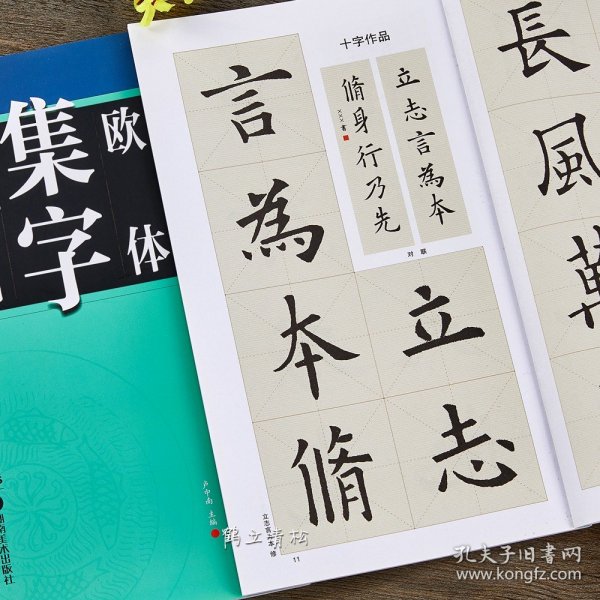 集字
欧体
卢中南 主编
湖南美术出版社
十字作品
立志言為本
脩身行乃先
×××書
对联
立志
言為本脩
立志言為本 修
11
長風萬
鹤立青松
孔夫子旧书网
www.kongfz.com